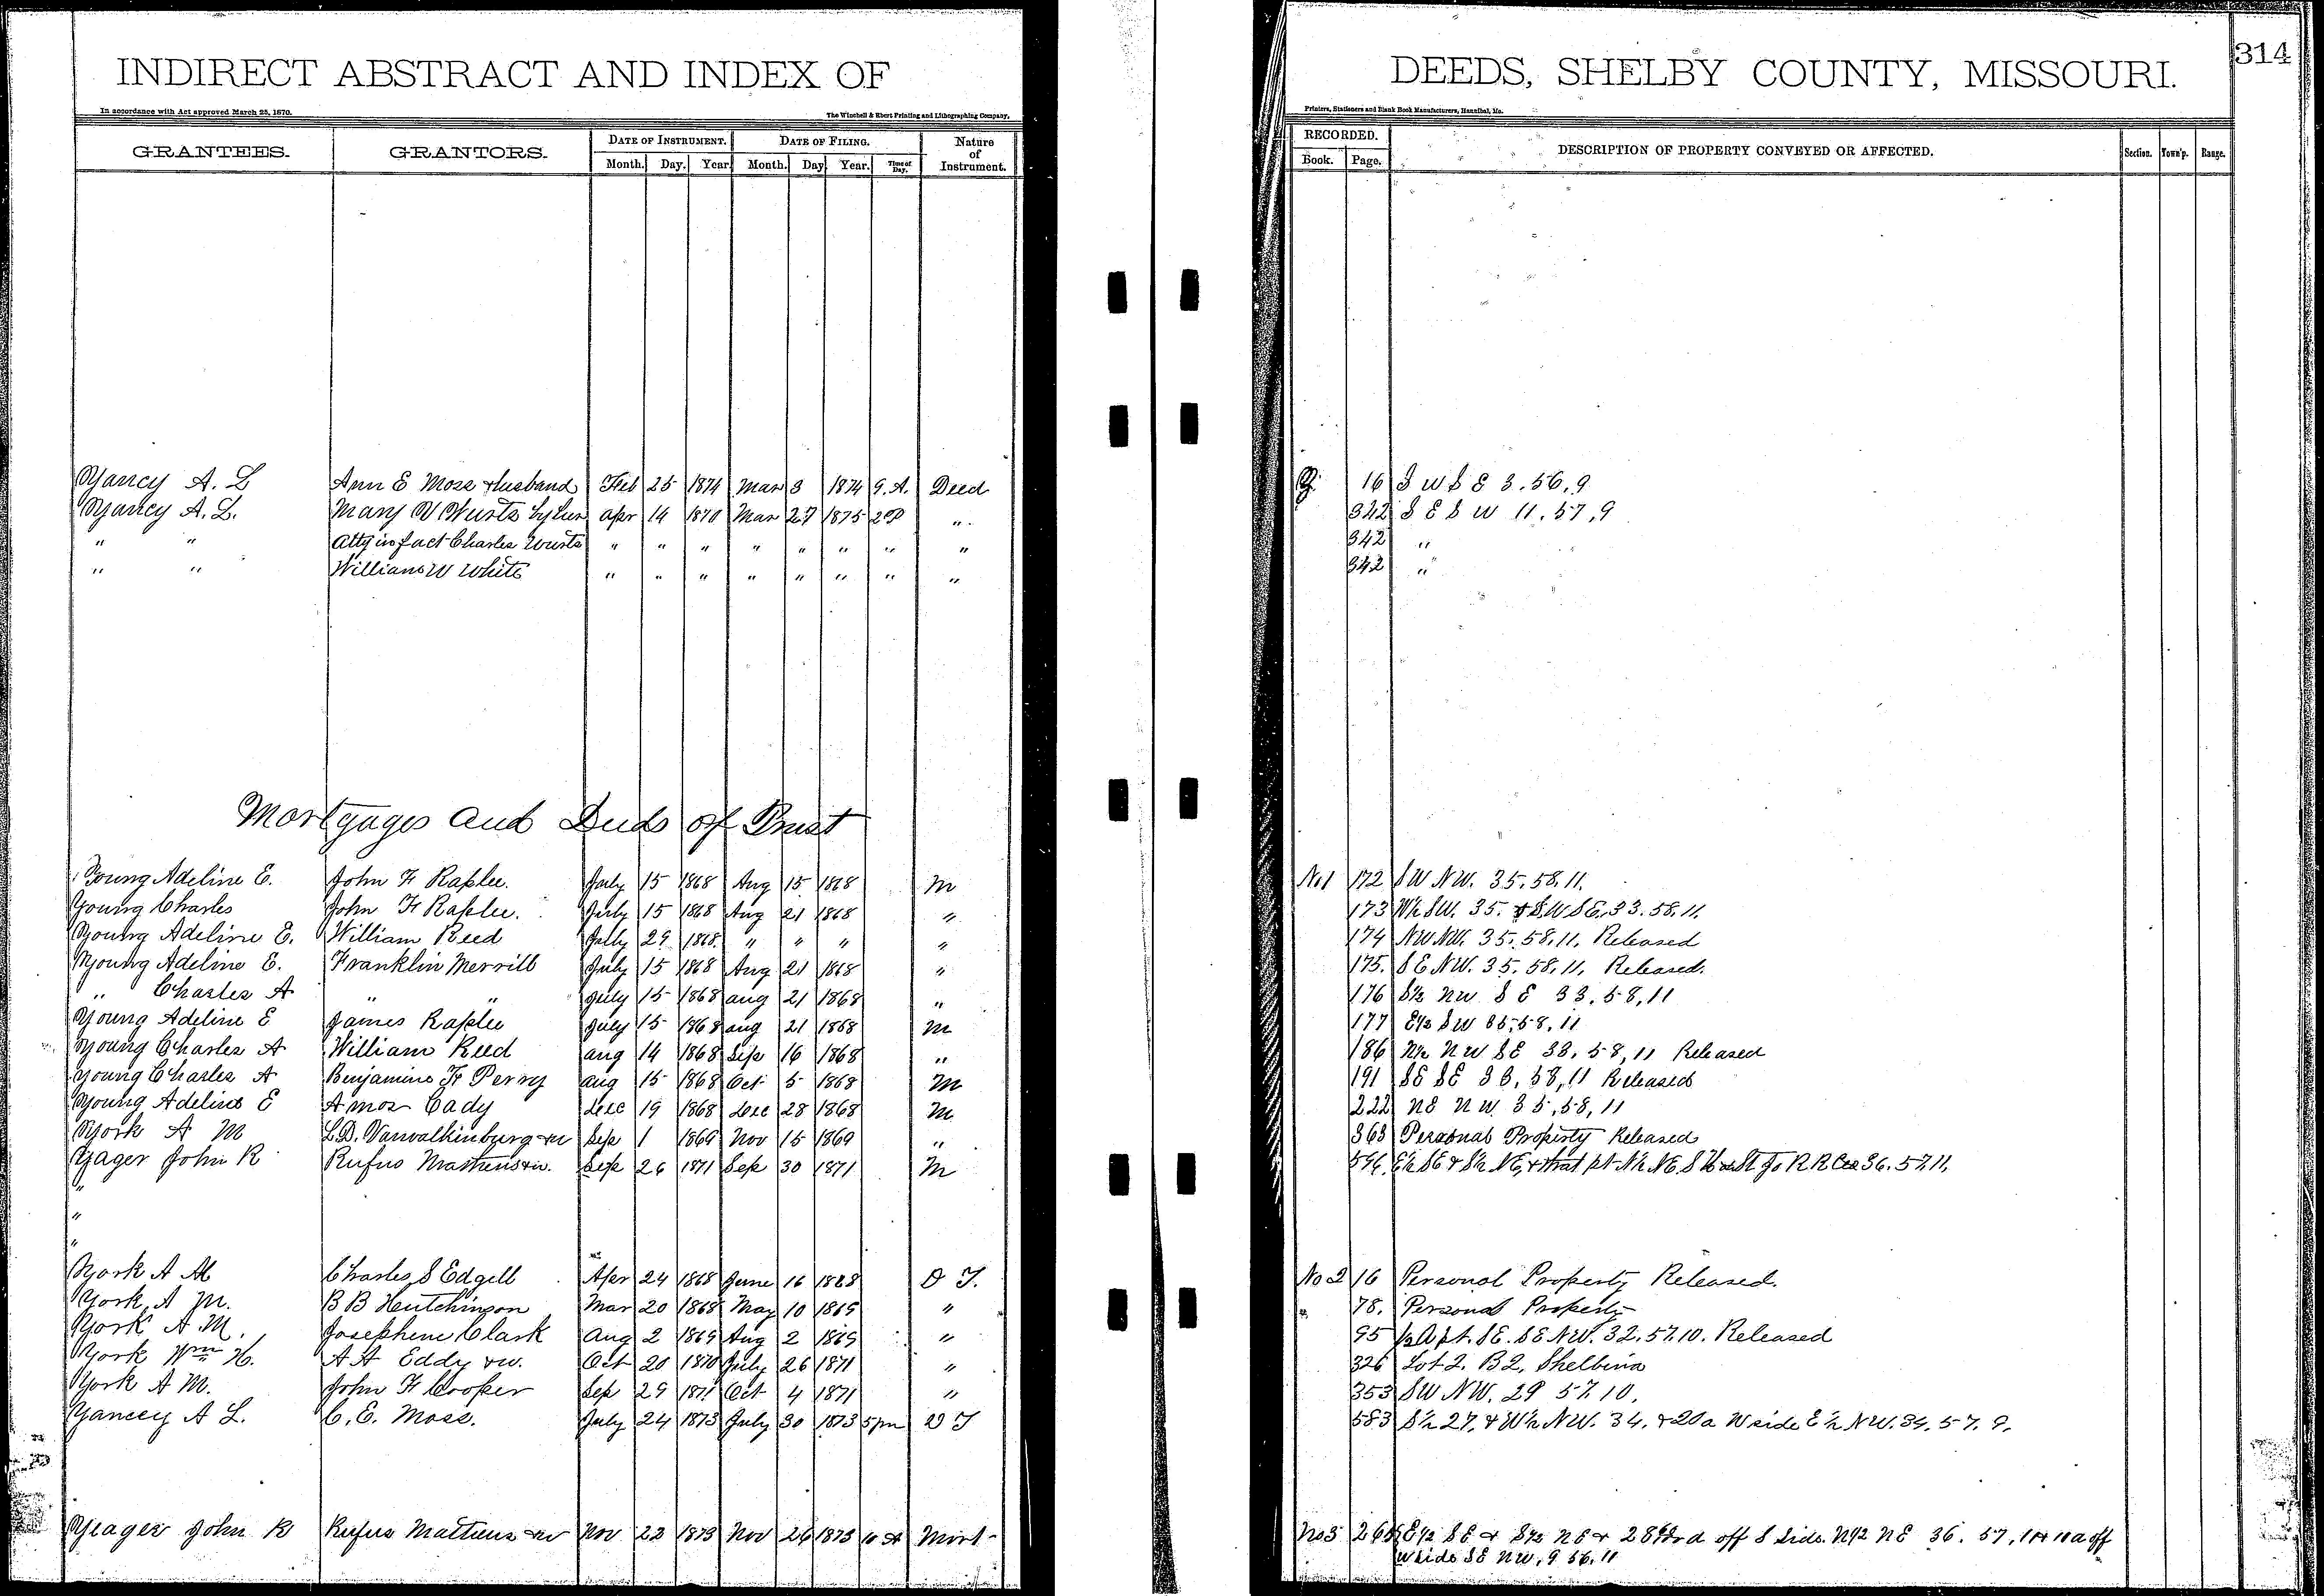 INDIRECT ABSTRACT AND INDEX OF DEEDS, SHELBY COUNTY, MISSOURI. 314
In accordance with Act approved March 25, 1870. The Winchell & Ebert Printing and Lithographing Company, Printers, Stationers and Blank Book Manufacturers, Hannibal, Mo.
GRANTEES. GRANTORS. DATE OF INSTRUMENT. DATE OF FILING. Nature of Instrument. RECORDED. DESCRIPTION OF PROPERTY CONVEYED OR AFFECTED. Section. Town'p. Range.
Month. Day. Year Month. Day Year. Time of Day. Book. Page.
Yancy A. L Ann E Moss & husband Feb 25 1874 Mar 3 1874 9. A. Deed 16 S W S E 3. 56, 9
Yancy A. L. Mary V Wurts by her apr 14 1870 Mar 27 1875 2 P " 342 S E S W 11. 57, 9
" " Atty in fact Charles Wurts " " " " " " " " 342 "
" " William W White " " " " " " " " 342 "
Mortgages and Deeds of Trust
Young Adeline E. John F Raplee. July 15 1868 Aug 15 1868 M No 1 172 SW NW. 35. 58. 11.
Young Charles John F Raplee. July 15 1868 Aug 21 1868 " 173 W½ SW. 35. & S.W SE. 33. 58. 11.
Young Adeline E. William Reed July 29 1868 " " " " 174 NW NW. 35. 58. 11. Released
Young Adeline E. Franklin Merrill July 15 1868 Aug 21 1868 " 175. S E NW. 35. 58. 11. Released.
" Charles A " " July 15 1868 aug 21 1868 " 176 S½ NW S E 33. 58, 11
Young Adeline E James Raplee July 15 1868 aug 21 1868 M 177 E½ SW 35, 58, 11
Young Charles A William Reed aug 14 1868 Sep 16 1868 " 186 N½ N W SE 33, 58, 11 Released
Young Charles A Benjamin F Perry aug 15 1868 Oct 5 1868 M 191 SE SE 33, 58, 11 Released
Young Adeline E Amos Cady Dec 19 1868 Dec 28 1868 M 222 NE N W. 35, 58, 11
York A M L.D. Vanvalkinburg & w Sep 1 1869 Nov 15 1869 " 363 Personal Property Released
Yager John R Rufus Matheus & w. Sep 26 1871 Sep 30 1871 M E½ SE & S½ NE, & that pt N½ NE. S H & St Jo R R 36. 57. 11.
"
"
"
York A M Charles S Edgell Apr 24 1868 June 16 1868 D T. No 2 16 Personal Property Released.
York A M. B B Hutchinson Mar 20 1868 May 10 1869 " " 78. Personal Property
York A. M. Josephine Clark Aug 2 1869 Aug 2 1869 " 95 ½ A pt. SE. SE NW. 32. 57. 10. Released
York Wm H. A A Eddy & w. Oct 20 1870 July 26 1871 " 326 Lot 2. B 2, Shelbina
York A M. John F Cooper Sep 29 1871 Oct 4 1871 " 353 SW NW. 29 57. 10.
Yancey A L. C. E. Moss. July 24 1873 July 30 1873 5 pm D T 583 S½ 27. & W½ NW. 34. & 20 a W side E ½ NW. 34. 57. 9.
Yeager John R Rufus Matheus & w Nov 22 1873 Nov 26 1873 10 A Mort No 3 E½ SE & S½ NE & off S Side. N½ NE 36. 57. 11 & 10 a off
W side SE NW, 9 56. 11